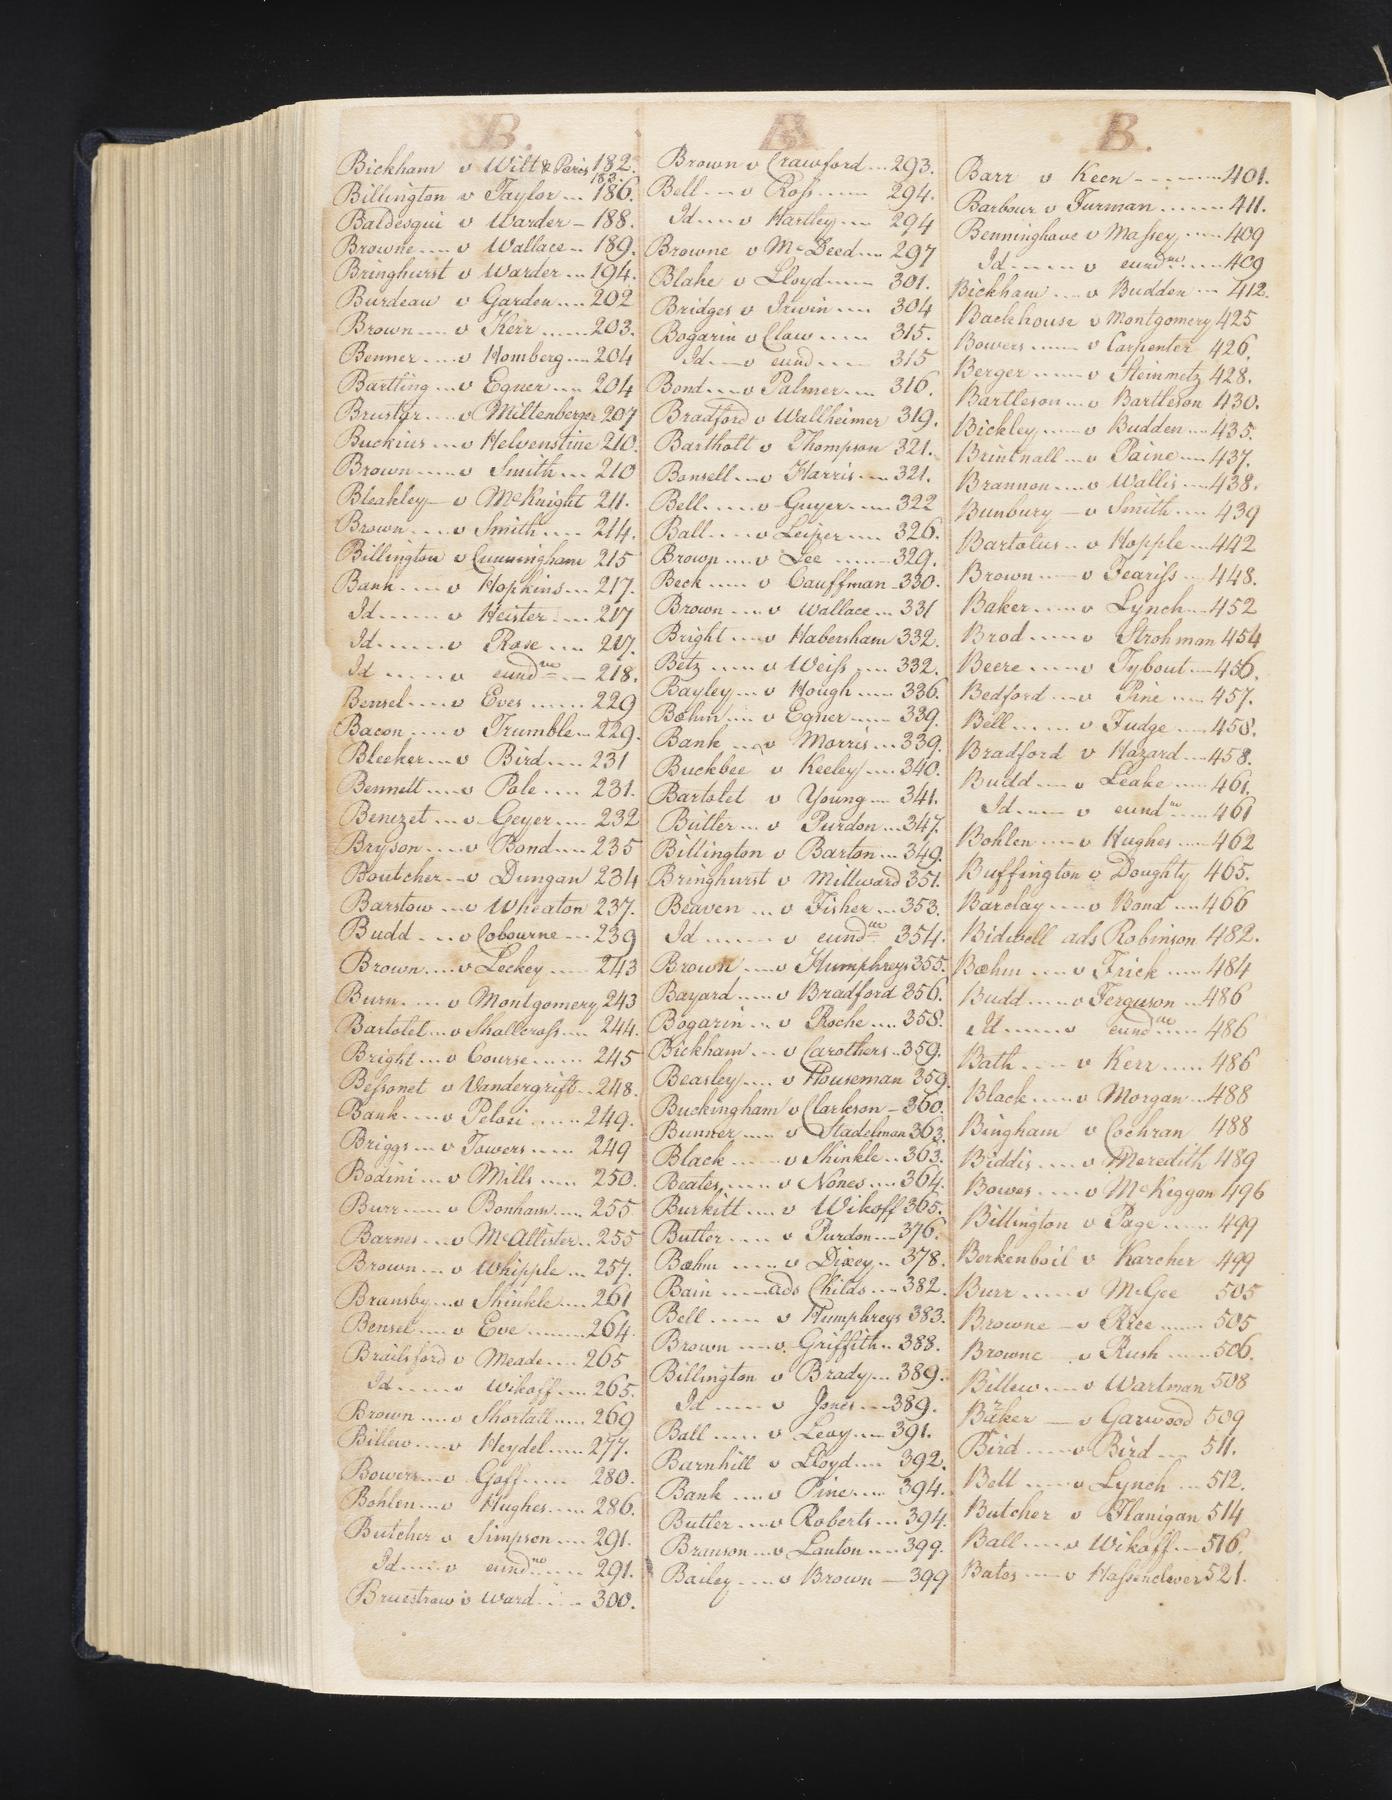 B.
Bickham v Wilt & Paris 182.
183.
Billington v Taylor ... 186.
Baldesqui v Warder - 188.
Browne .... v Wallace .. 189.
Bringhurst v Warder ... 194.
Burdeau v Garden .... 202
Brown .... v Kerr ...... 203.
Benner .... v Homberg ... 204
Bartling ... v Egner .... 204
Bruster .... v Miltenberger 207
Buckius .... v Helvenstine 210.
Brown ..... v Smith .... 210
Bleakley — v McKnight 211.
Brown .... v Smith ..... 214.
Billington v Cunningham 215
Bank .... v Hopkins ... 217.
Id ....... v Heister ..... 217
Id ....... v Rose .... 217.
Id ...... v eundm .. — 218.
Bensel .... v Eves ...... 229
Bacon .... v Trumble ... 229.
Bleeker ... v Bird .... 231
Bennett .... v Pole ..... 231.
Benezet ... v Geyer .... 232
Bryson .... v Bond .... 235
Boutcher ... v Dungan 234
Barstow ... v Wheaton 237.
Budd .... v Cobourne ... 239
Brown .... v Leckey ..... 243
Burn .... v Montgomery 243
Bartolet .. v Shallcross .... 244.
Bright ... v Course ...... 245
Bessonet v Vandergrift .. 248.
Bank .... v Pelosi ...... 249.
Briggs ... v Towers ...... 249
Bodini ... v Mills ..... 250.
Burr ..... v Bonham .... 255
Barnes ... v McAllister .. 255
Brown ... v Whipple ... 257.
Bransby .. v Shinkle .... 261
Bensel .... v Eve ........ 264.
Brailsford v Meade .... 265
Id ...... v Wikoff .... 265.
Brown .... v Shortall ..... 269
Billew .... v Heydel ..... 277.
Bowers ... v Goff ...... 280.
Bohlen ... v Hughes ..... 286.
Butcher v Simpson .... 291.
Id .... v eundm ..... 291.
v Ward ..... 300.
B
Brown v Crawford ... 293.
Bell .... v Ross ..... 294.
Id .... v Hartley .... 294
Browne v McDeed ... 297
Blake v Lloyd ..... 301.
Bridges v Irwin .... 304
Bogarin v Claw ..... 315.
Id .... v eund ...... 315
Bond ... v Palmer .... 316.
Bradford v Wallheimer 319.
Barthott v Thompson 321.
Bonsell ... v Harris .... 321.
Bell ..... v Guyer ..... 322
Ball ..... v Leiper .... 326.
Brown .... v Lee ....... 329.
Beck ..... v Cauffman - 330.
Brown .... v Wallace ... 331
Bright .... v Habersham 332.
Betz ..... v Weiss .... 332.
Bayley ... v Hough ..... 336.
Bœhm .... v Egner ..... 339.
Bank .... v Morris ... 339.
Buckbee v Keeley .... 340.
Bartolet v Young .... 341.
Butler ... v Purdon ... 347.
Billington v Barton ... 349.
Bringhurst v Millward 351.
Beaven ... v Fisher ... 353.
Id ....... v eundm 354.
Brown .... v Humphreys 355.
Bayard ..... v Bradford 356.
Bogarin ... v Roche .... 358.
Bickham ... v Carothers .. 359.
Beasley .... v Houseman 359.
Buckingham v Clarkson - 360.
Bunner ..... v Stadelman 363.
Black ...... v Shinkle .. 363.
Beates ..... v Nones .... 364.
Burkitt .... v Wikoff 365.
Butler ..... v Purdon ... 376.
Bœhm ...... v Dixey .. 378.
Bain ..... ads Childs .... 382.
Bell ..... v Humphreys 383.
Brown .... v Griffith .. 388.
Billington v Brady ... 389.
Id ..... v Jones .... 389.
Ball ..... v Levy .... 391.
Barnhill v Lloyd .... 392.
Bank .... v Pine .... 394.
Butler .... v Roberts ... 394.
Branson ... v Lauton .... 399.
Bailey .... v Brown — 399
B.
Barr v Keen ........ 401.
Barbour v Furman ....... 411.
Benninghave v Massey ..... 409
Id ..... v eundm ..... 409
Bickham .... v Budden ... 412.
Backhouse v Montgomery 425
Bowers ..... v Carpenter 426.
Berger ..... v Steinmetz 428.
Bartleson ... v Bartleson 430.
Bickley .... v Budden ... 435.
Brintnall ... v Paine .... 437.
Brannon .... v Wallis .... 438.
Bunbury — v Smith .... 439
Bartolus .. v Hopple ... 442
Brown .... v Feariss .... 448.
Baker .... v Lynch ... 452
Brod ..... v Strohman 454
Beere ..... v Tybout .... 456.
Bedford ... v Pine ..... 457.
Bell ...... v Fudge .... 458.
Bradford v Hazard .... 458.
Budd .... v Leake .... 461.
Id ..... v eundm ..... 461
Bohlen .... v Hughes ..... 462
Buffington v Doughty 465.
Barclay .... v Bond .... 466
Bidwell ads Robinson 482.
Bœhm .... v Frick ..... 484
Budd ..... v Ferguson ... 486
Id ...... v eundm .... 486
Bath .... v Kerr ..... 486
Black ..... v Morgan ... 488
Bingham v Cochran 488
Biddis .... v Meredith 489
Bowes .... v McKiggan 496
Billington v Page ...... 499
Berkenboil v Karcher 499
Burr ..... v McGee 505
Browne — v Rice ...... 505
Browne — v Rush ..... 506.
Billew .... v Wartman 508
Baker — v Garwood 509
Bird .... v Bird .... 511.
Bell .... v Lynch ... 512.
Butcher v Flanigan 514
Ball .... v Wikoff ... 516.
Bates .... v Hassenclever 521.